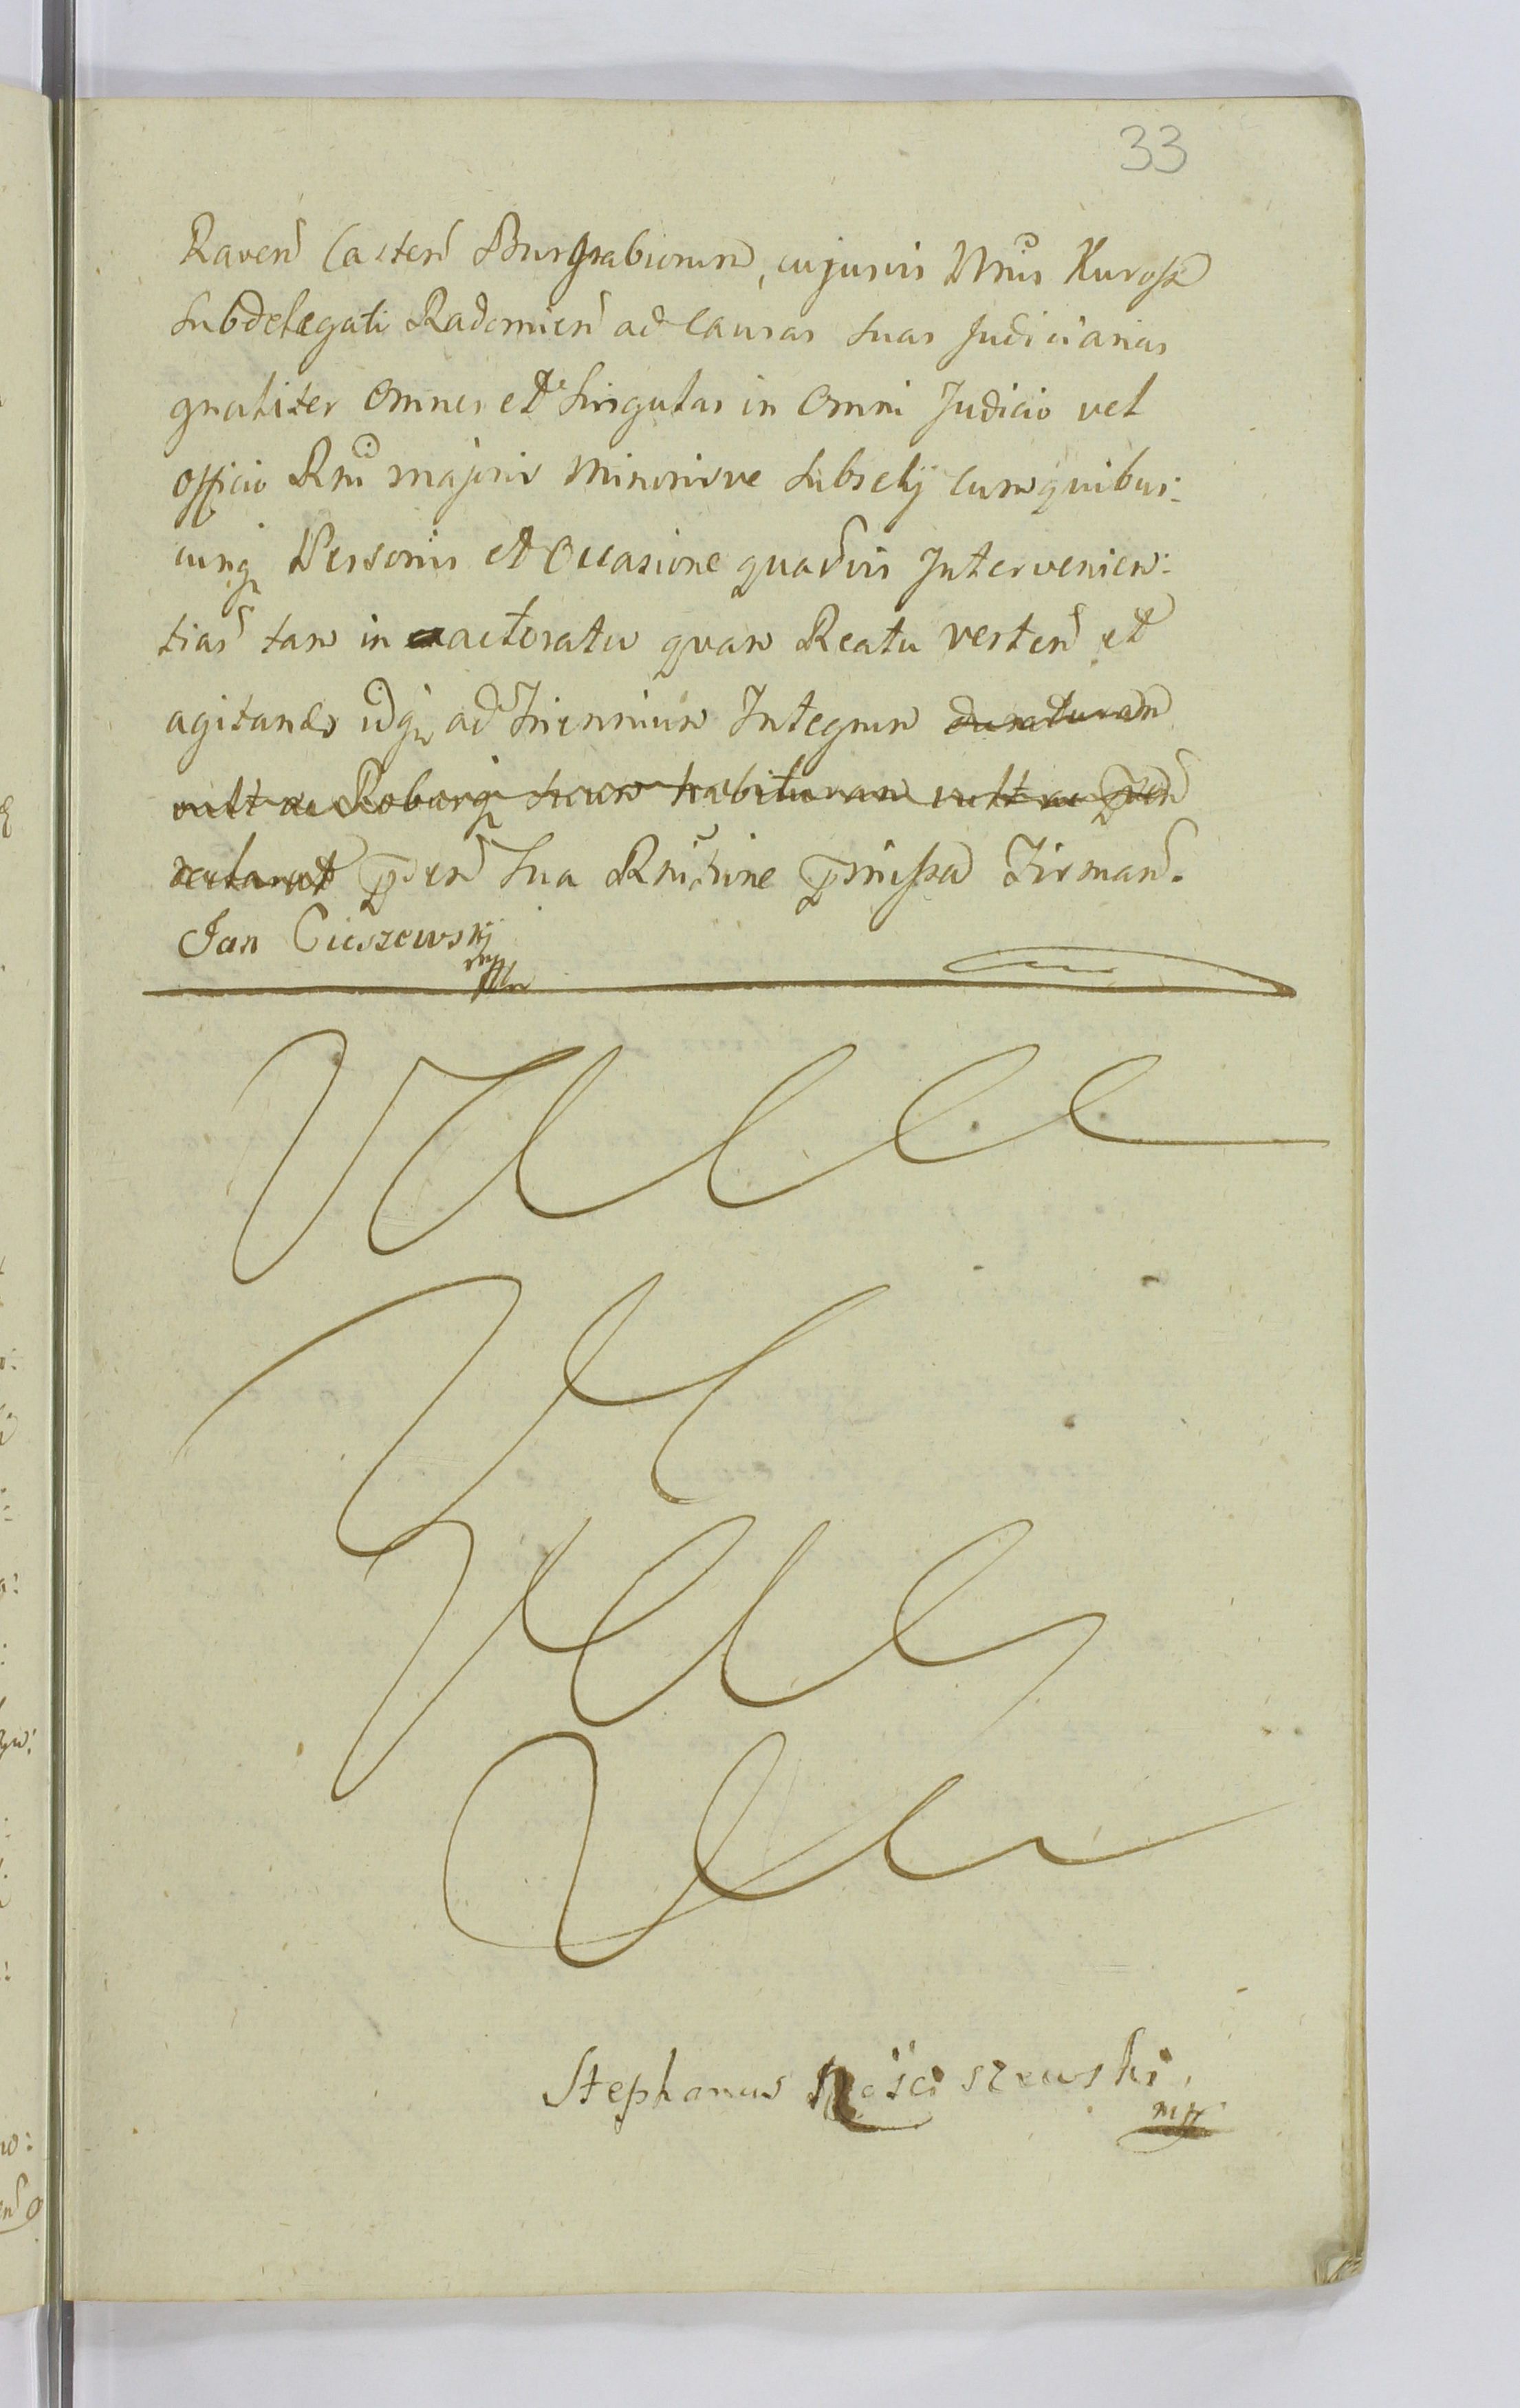 33
Raven Casten Burgrabiorum, cujusvis Mnis Kurosz
Subdelegati Radomien ad Causas Suas Judiciarias
gnaliter Omnes et Singulas in Omni Judicio vel
officio Rni majoris Minorisve Subselij cumquibus:
cunq Personis et Occasione quavis Intervenien:
tias tam in actoratu quam Reatu verten et
agitandas idq ad Triennium Integrum duraturam
vult ac Roburq suum habituram vult ac pnt
declarat pnten Sua Rnitione pmissa Firman.
Jan Cieszewski
mp
Stephanus Rościszewski
mp